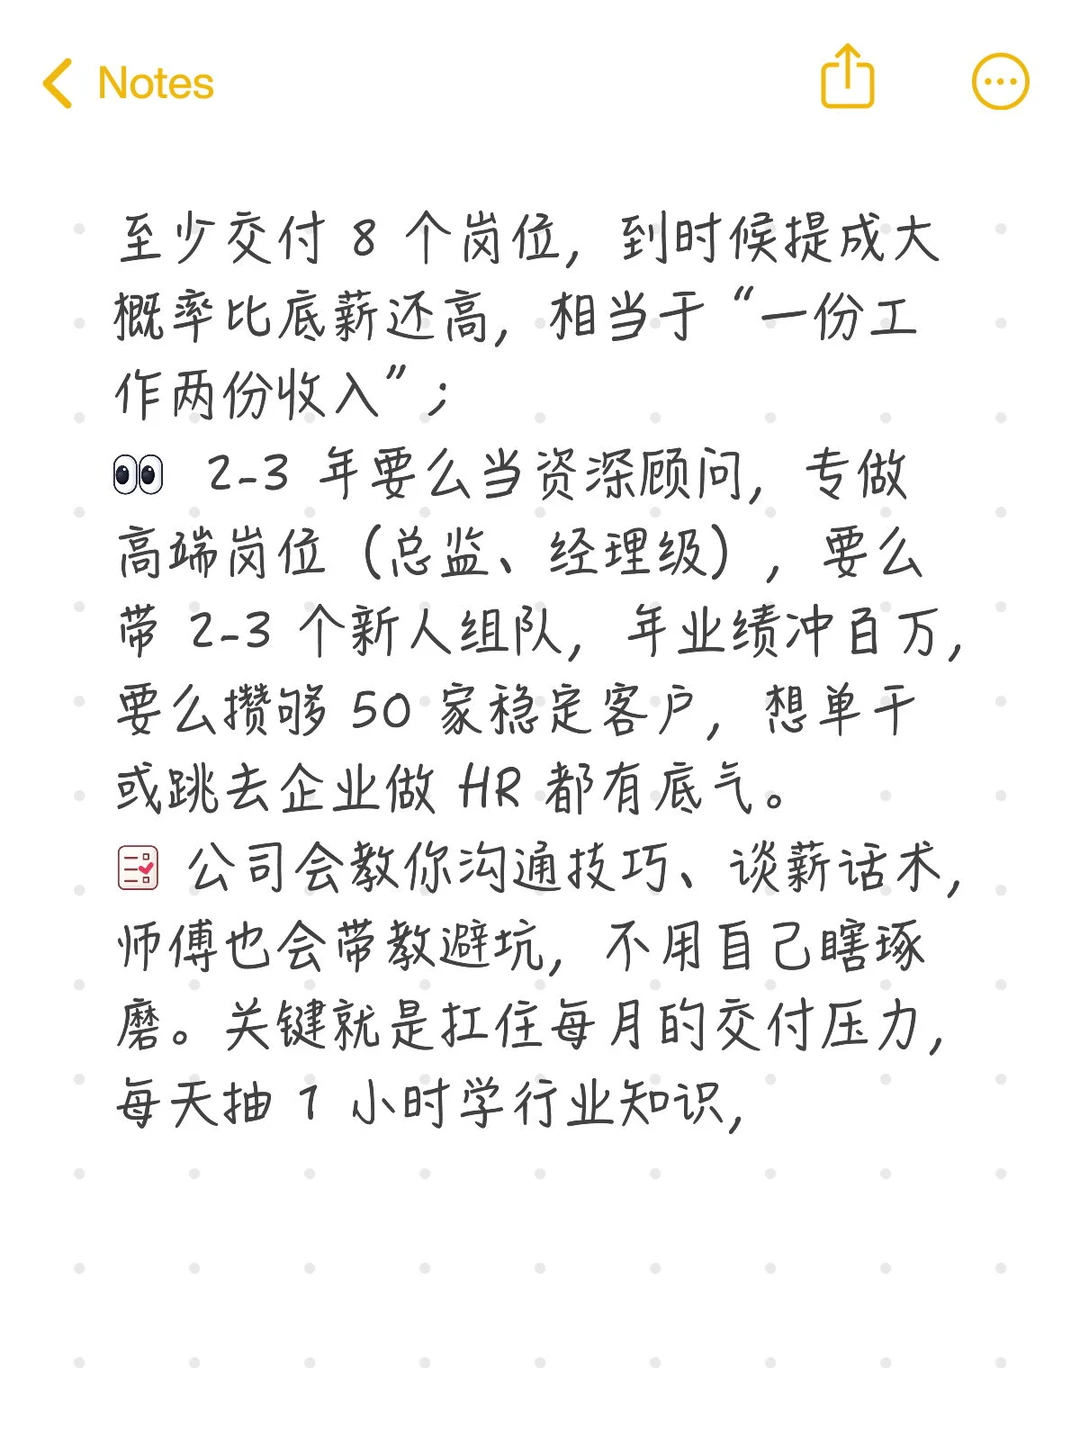 Notes
至少交付 8 个岗位，到时候提成大
概率比底薪还高，相当于“一份工
作两份收入”；
👀 2-3 年要么当资深顾问，专做
高端岗位（总监、经理级），要么
带 2-3 个新人组队，年业绩冲百万，
要么攒够 50 家稳定客户，想单干
或跳去企业做 HR 都有底气。
公司会教你沟通技巧、谈薪话术，
师傅也会带教避坑，不用自己瞎琢
磨。关键就是扛住每月的交付压力，
每天抽 1 小时学行业知识，